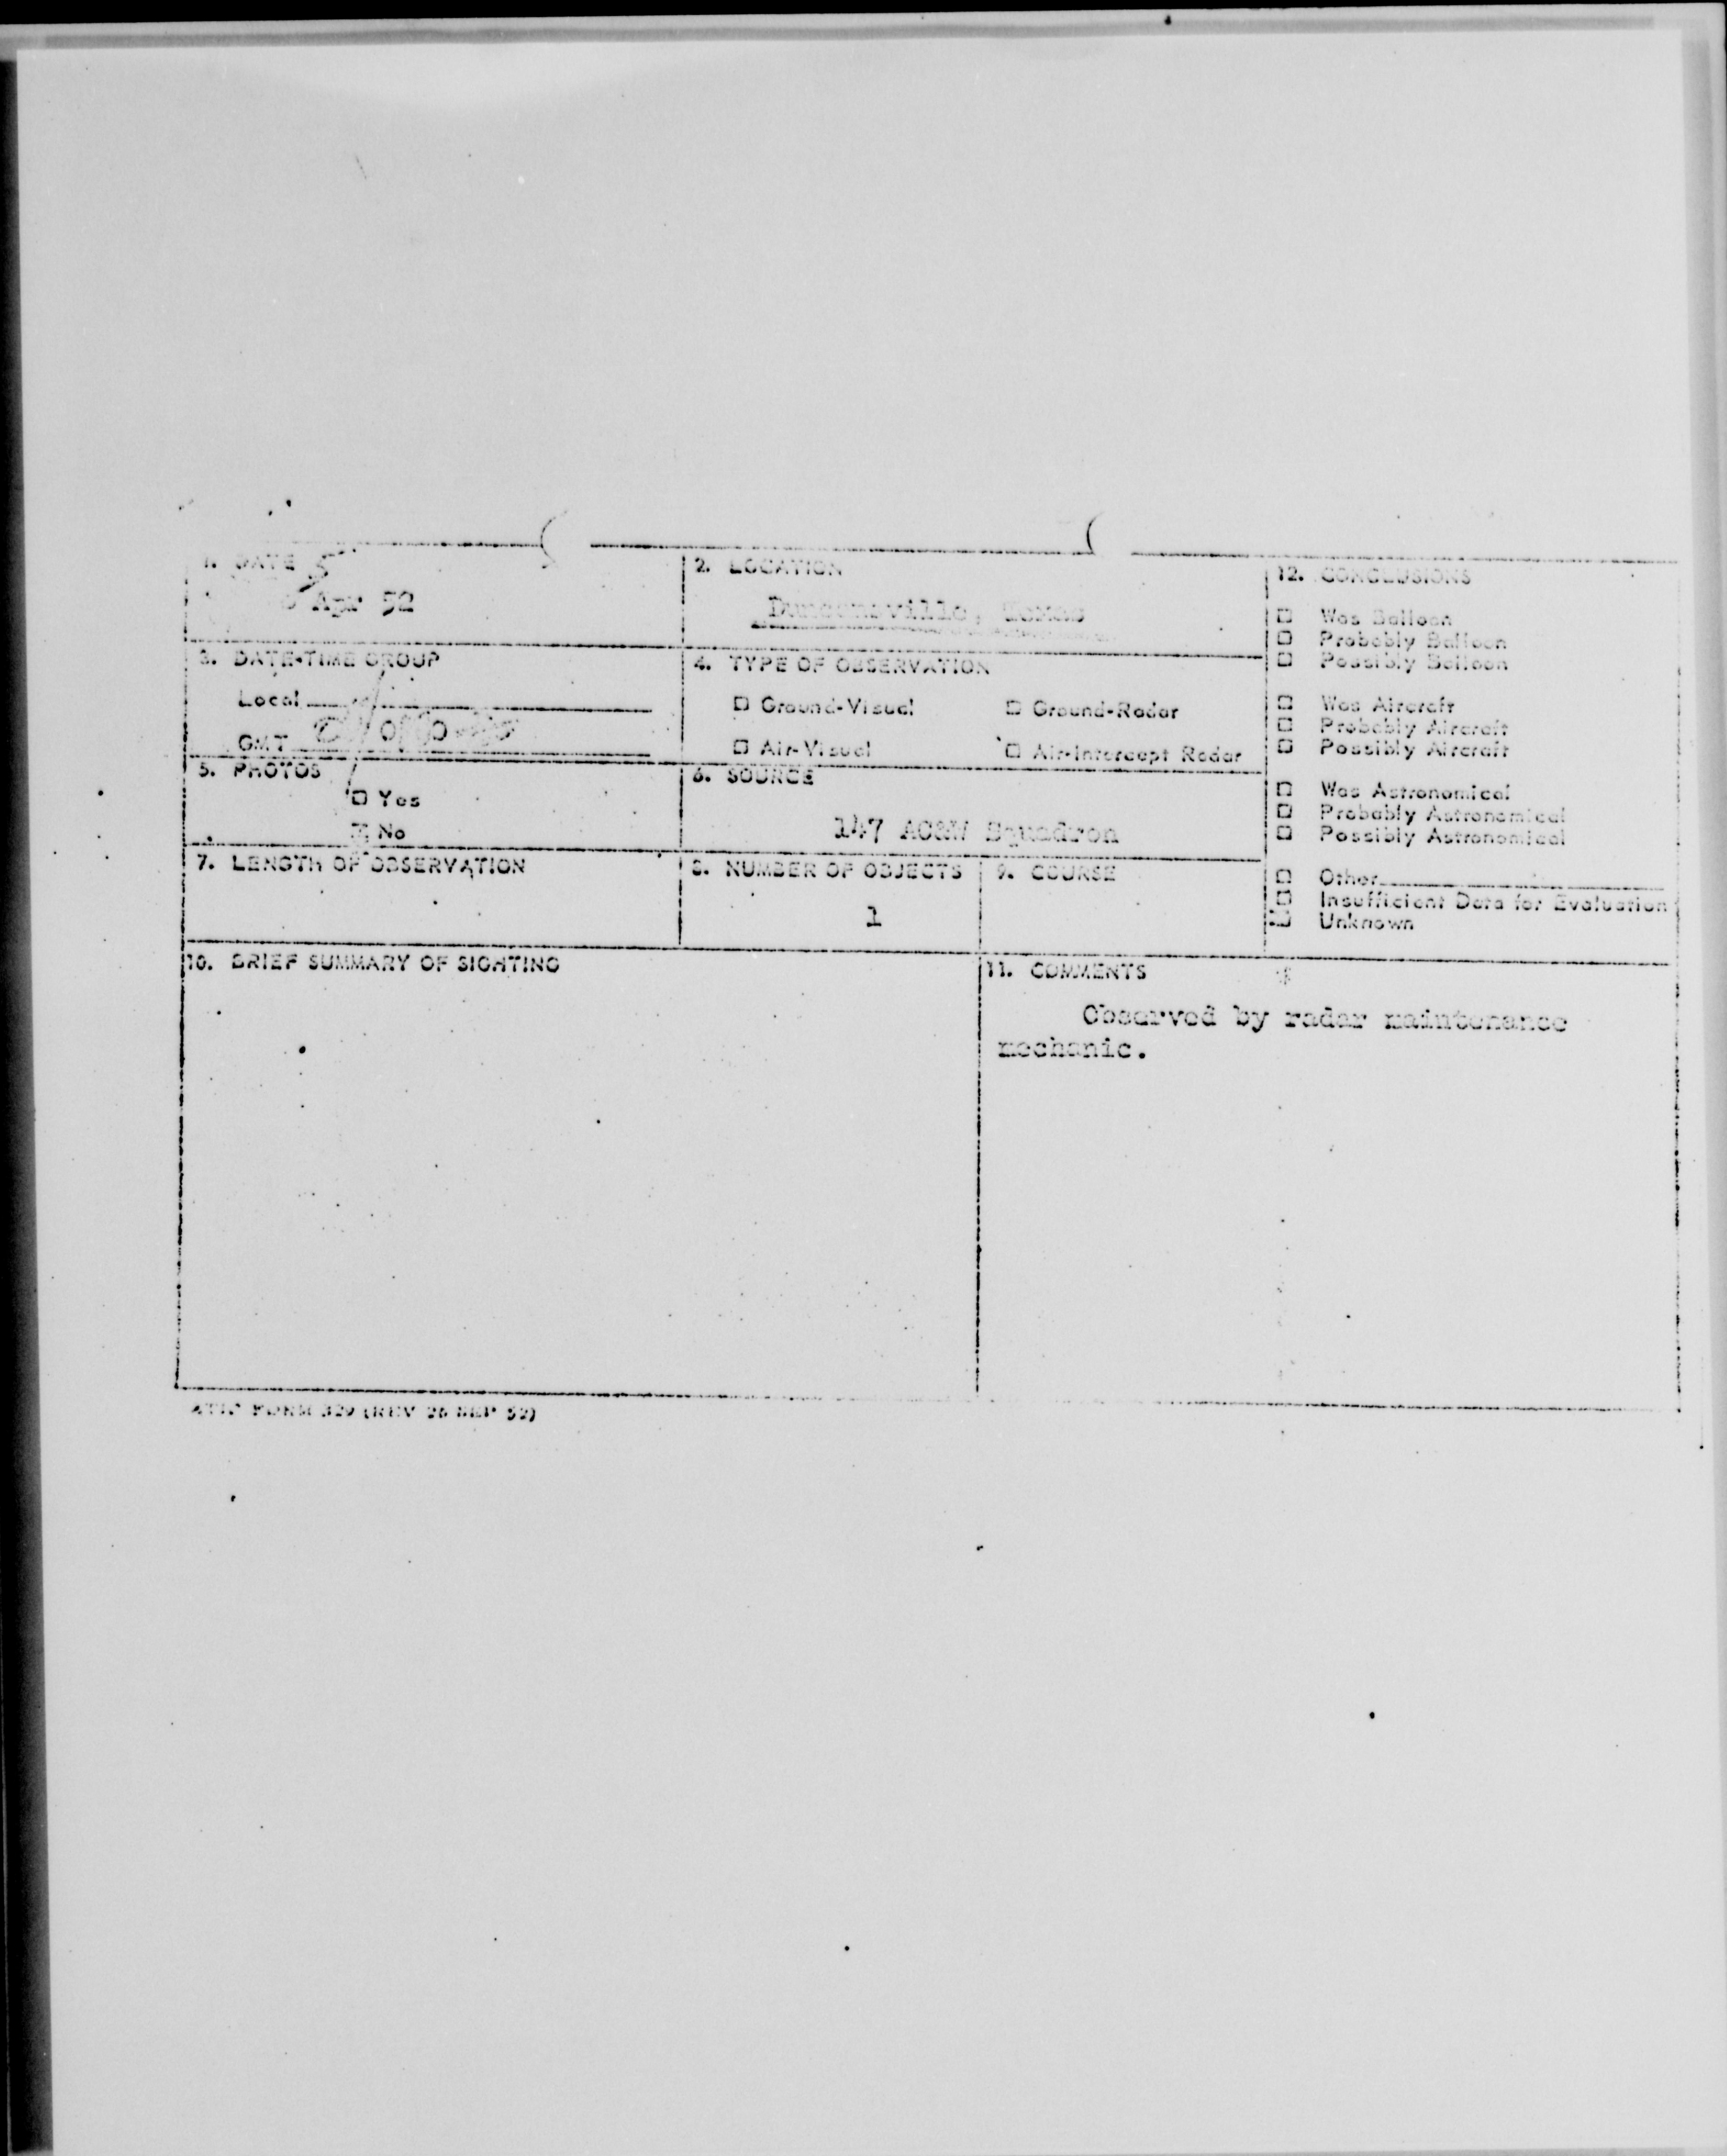 1. DATE
5
Apr 52
2. LOCATION
Duncanville, Texas
12. CONCLUSIONS
□ Was Balloon
□ Probably Balloon
□ Possibly Balloon
□ Was Aircraft
□ Probably Aircraft
□ Possibly Aircraft
□ Was Astronomical
□ Probably Astronomical
□ Possibly Astronomical
□ Other
□ Insufficient Data for Evaluation
Unknown
3. DATE-TIME GROUP
Local
GMT
4. TYPE OF OBSERVATION
□ Ground-Visual □ Ground-Radar
□ Air-Visual □ Air-Intercept Radar
5. PHOTOS
□ Yes
No
6. SOURCE
147 AC&W Squadron
7. LENGTH OF OBSERVATION
8. NUMBER OF OBJECTS
1
9. COURSE
10. BRIEF SUMMARY OF SIGHTING
11. COMMENTS
Observed by radar maintenance
mechanic.
ATIC FORM 329 (REV 26 SEP 52)